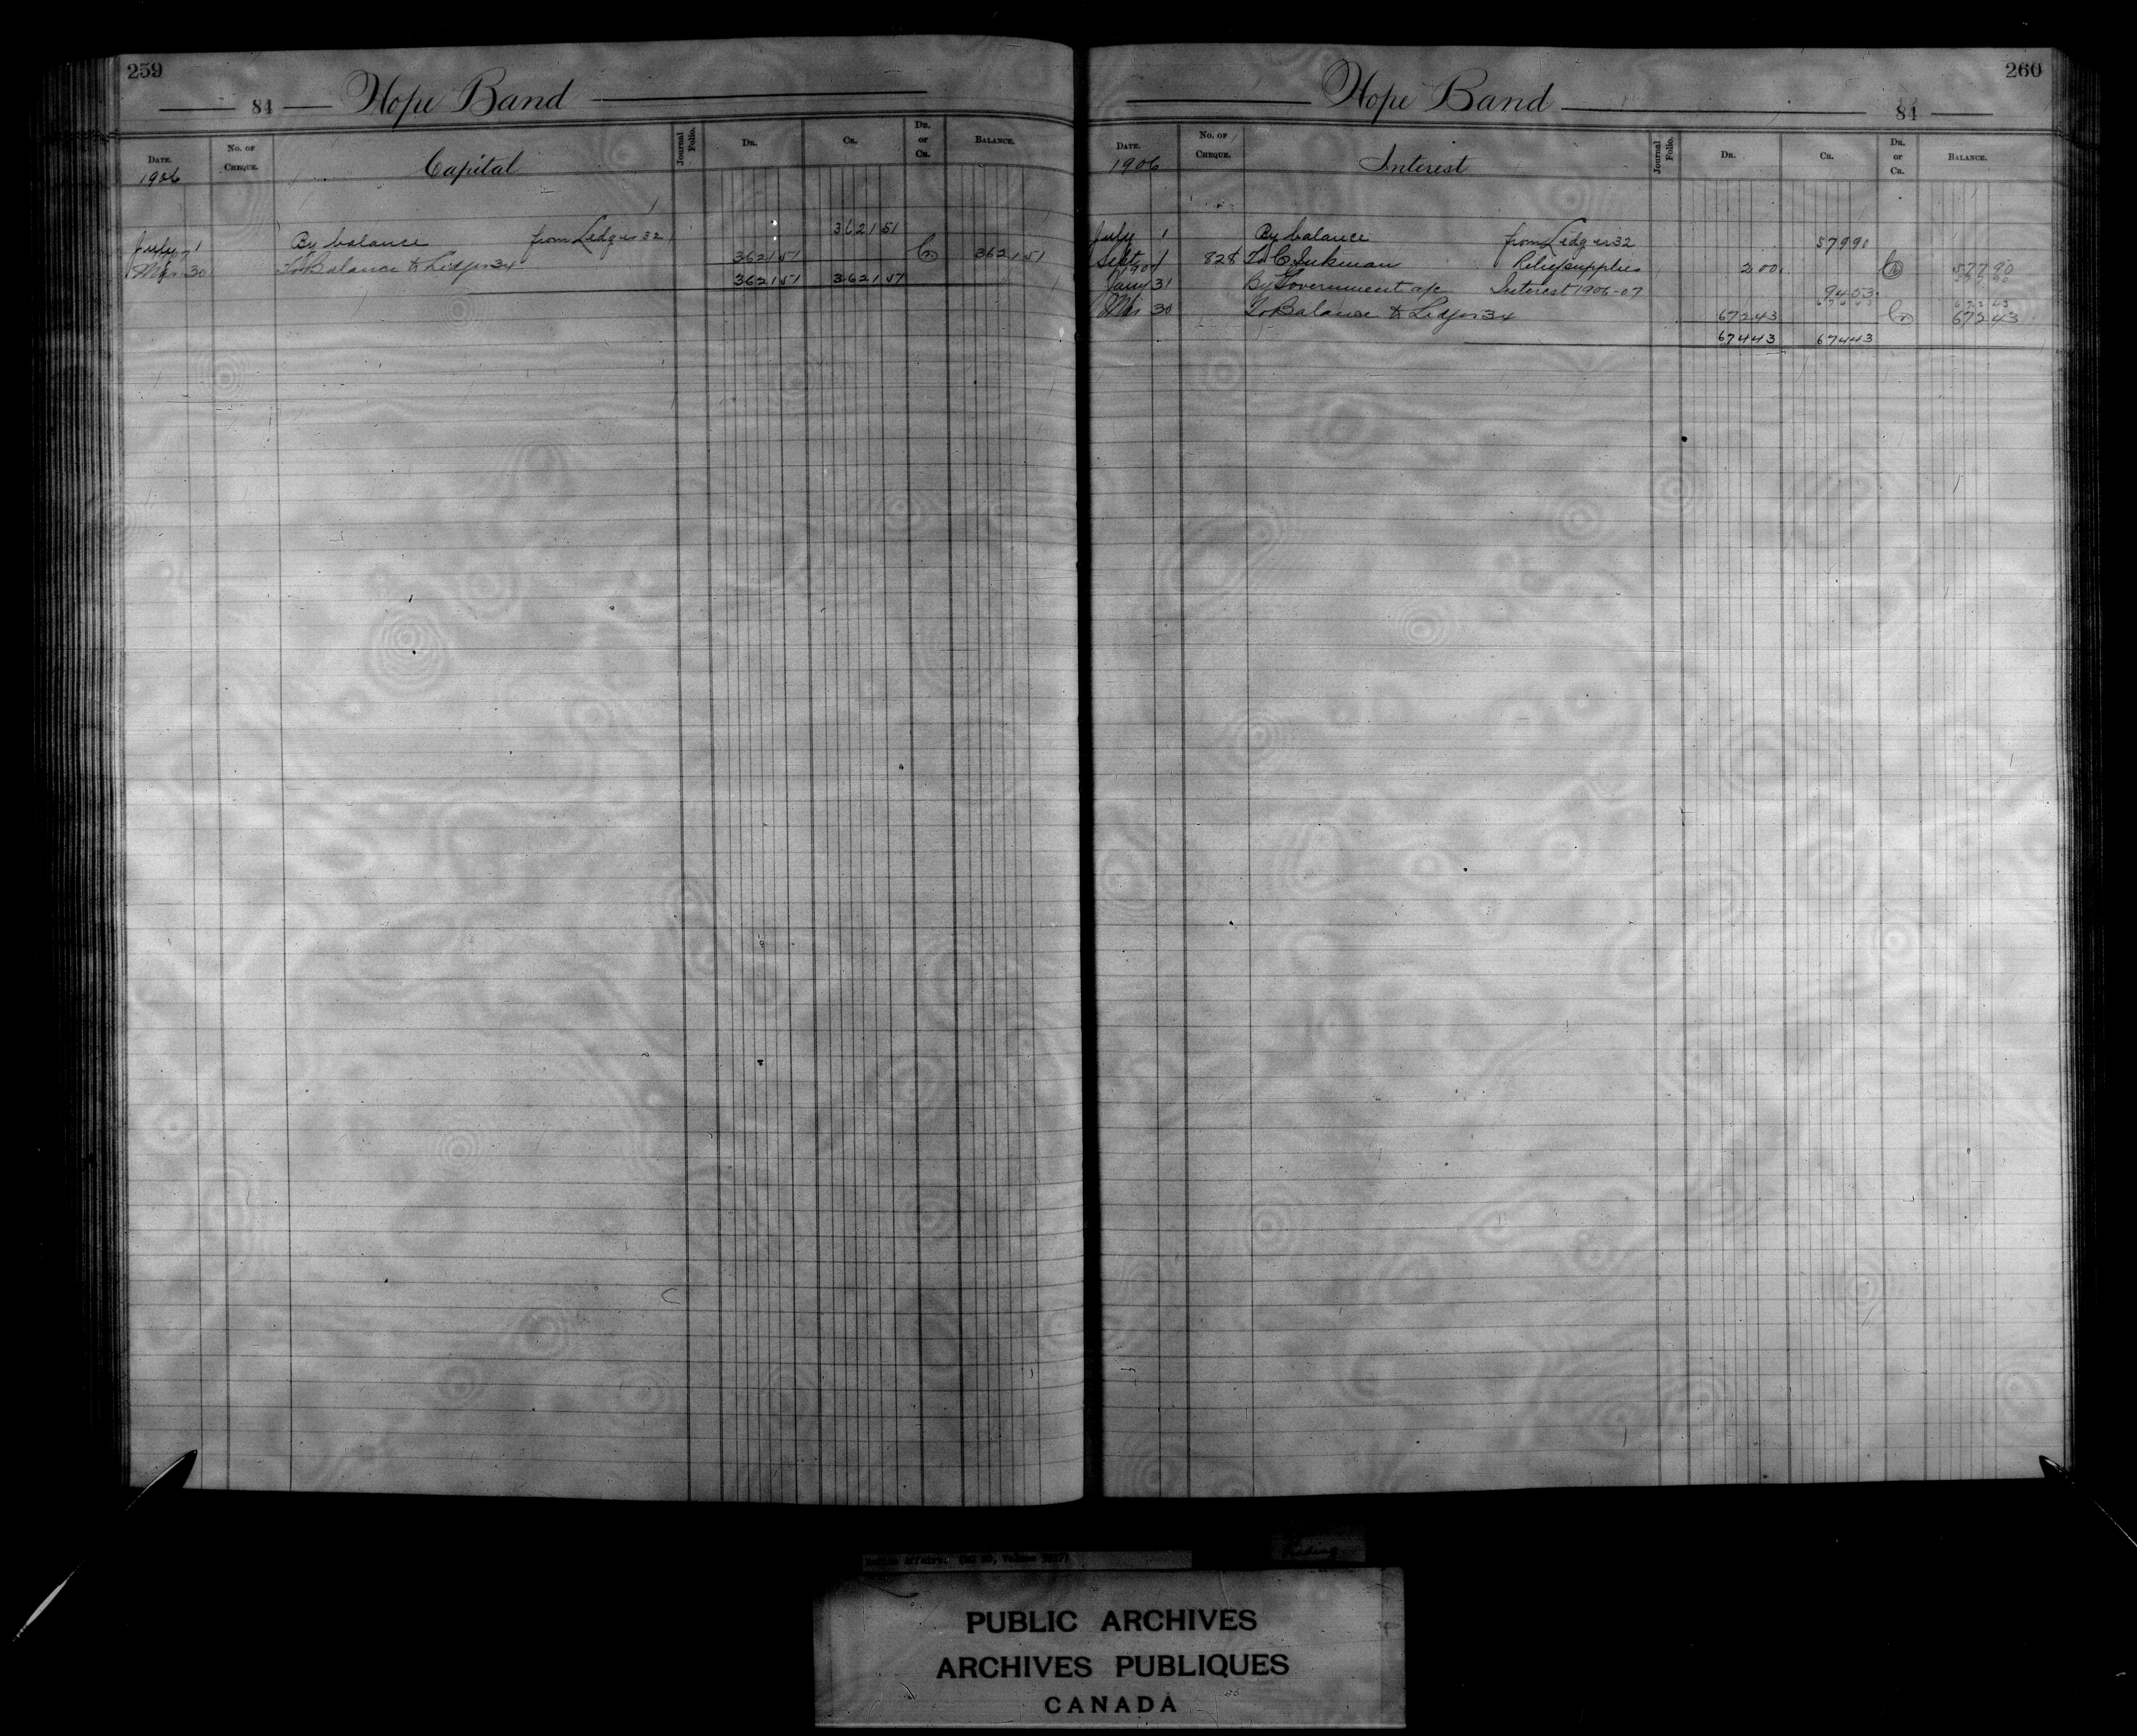 259
84 Hope Band
DATE. No. OF CHEQUE. Capital Journal Folio. DR. CR. DR. or CR. BALANCE.
1906
July 1 By balance from Ledger 32 3621 51
Mar 30 To Balance to Ledger 34 3621 51 Cr 3621 51
3621 51 3621 51
260
Hope Band 84
DATE. No. OF CHEQUE. Interest Journal Folio. DR. CR. DR. or CR. BALANCE.
1906
July 1 By balance from Ledger 32 579 90
Sept 1 828 To C. Relief supplies 2 00 Cr 577 90
1907
Jany 31 By Government a/c Interest 1906-07 94 53
Mar 30 To Balance to Ledger 34 672 43 Cr 672 43
674 43 674 43
PUBLIC ARCHIVES
ARCHIVES PUBLIQUES
CANADA